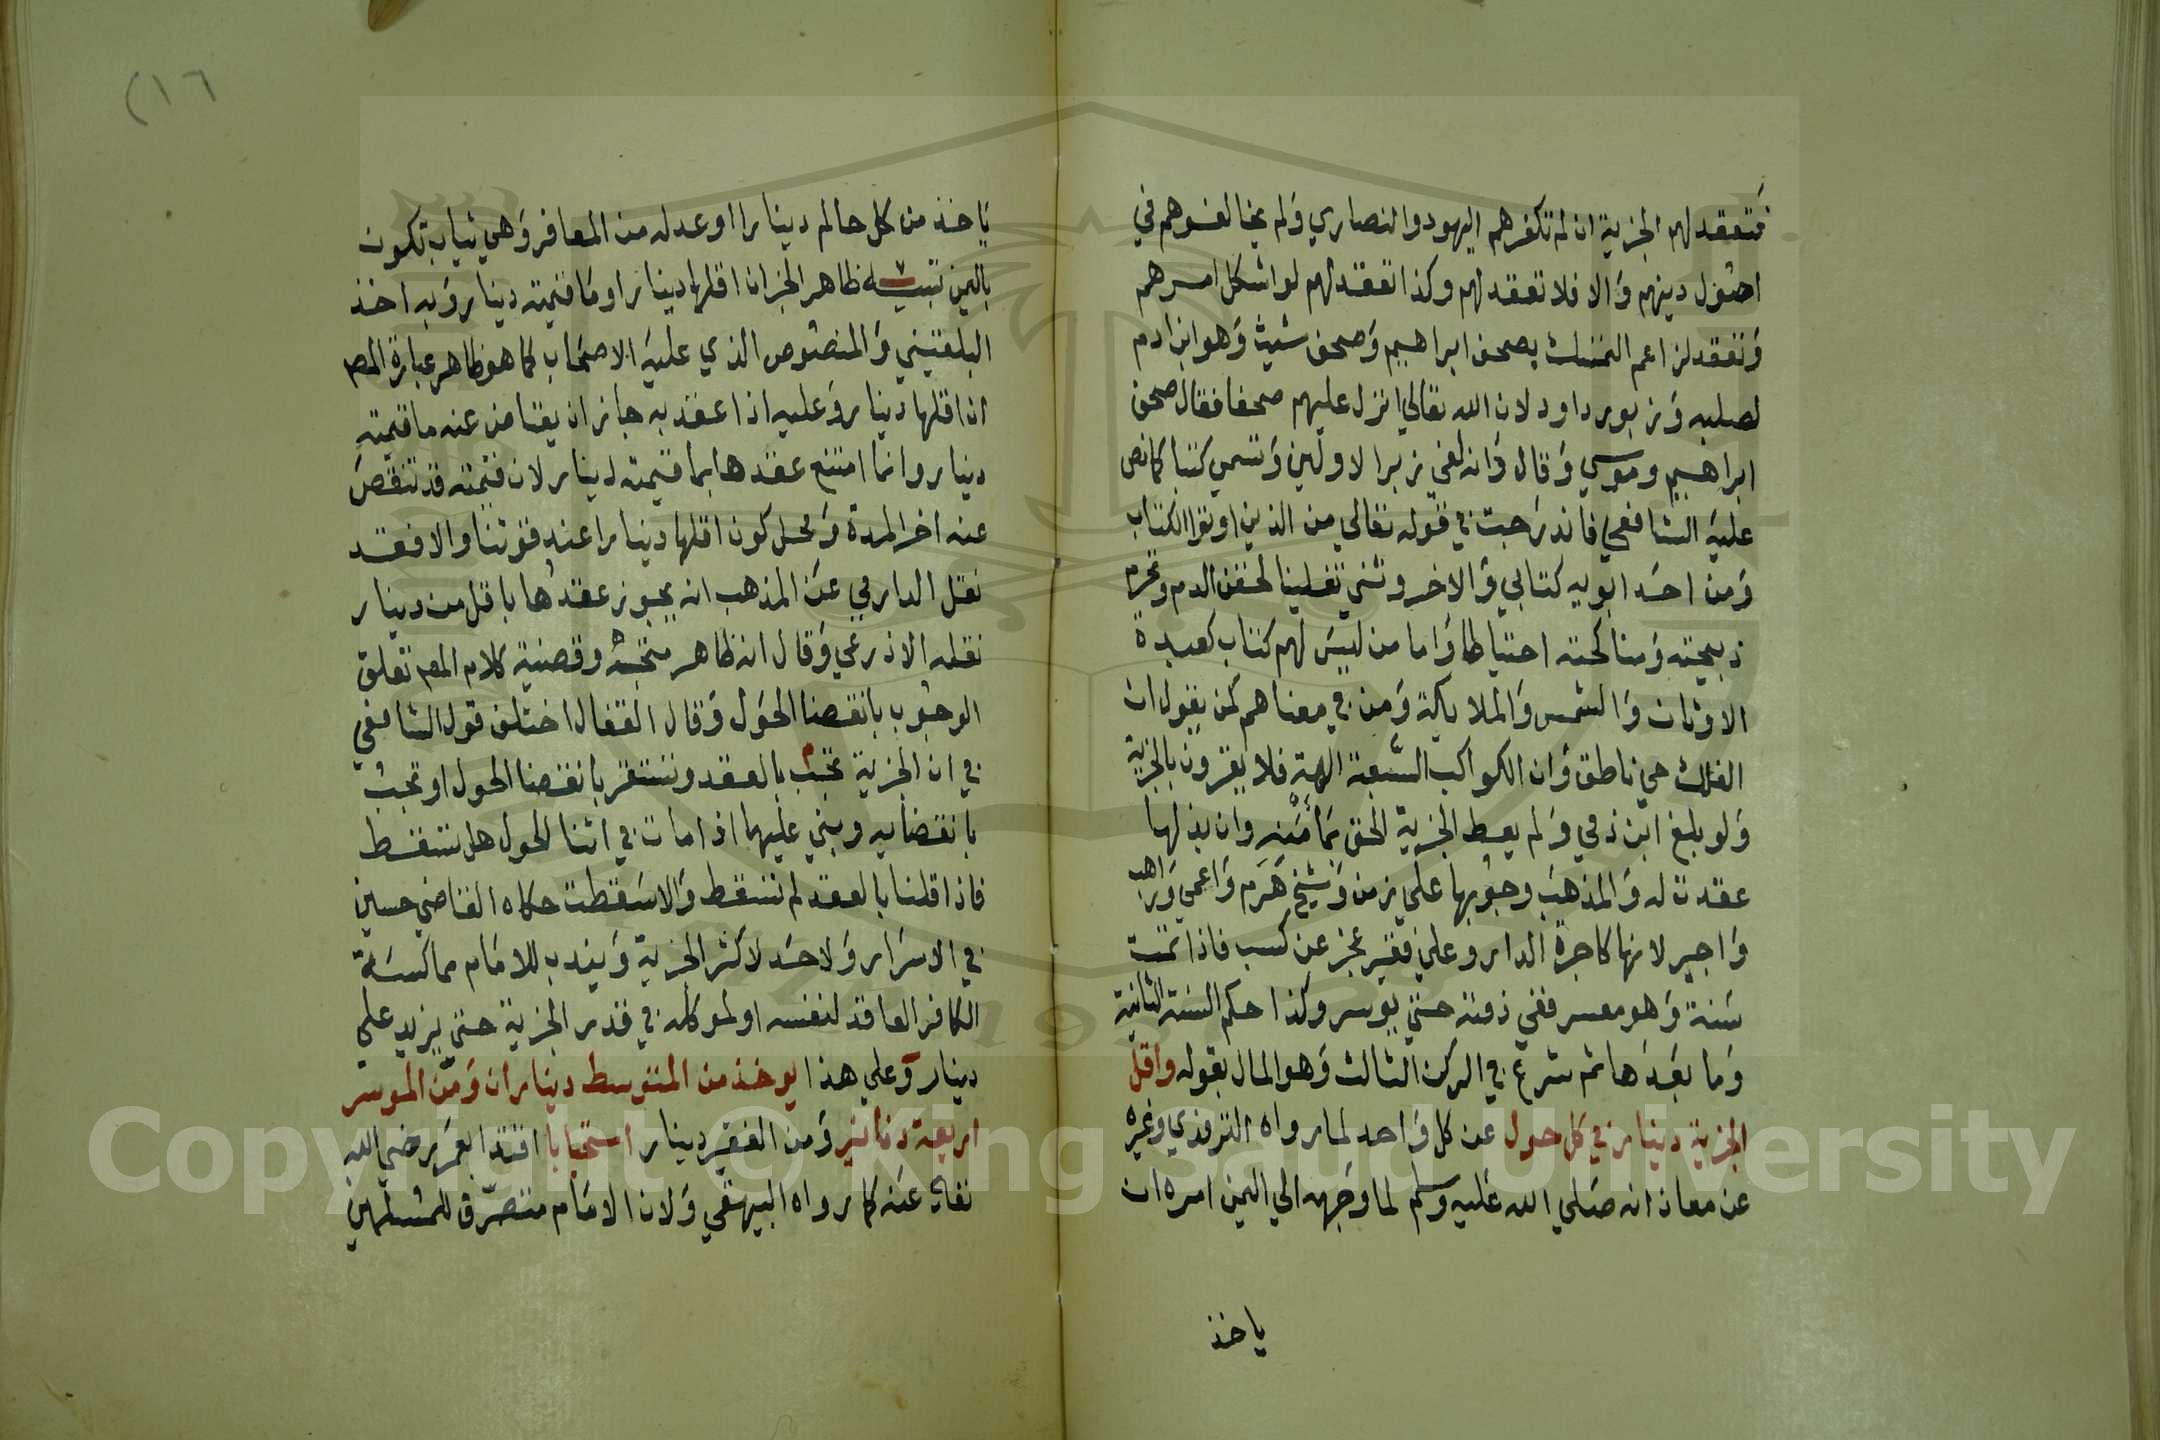 فتعقد لهم الجزية ان لم تكفرهم اليهود والنصاري ولم يخالفوهم في
اصول دينهم والا فلا تعقد لهم وكذا تعقد لهم لو اشكل امرهم
وتعقد لزاعم التمسك بصحف ابراهيم وصحف شيث وهو ابن ادم
لصلبه وزبور داود لان الله تعالي انزل عليهم صحفا فقال صحف
ابراهيم وموسي وقال وانه لفي زبر الاولين وتسمي كتبا كما نص
عليه الشافعي فاندرجت في قوله تعالي من الذين اوتوا الكتاب
ومن احد ابويه كتابي والاخر وثني تغليبا لحقن الدم وتحرم
ذبيحته ومناكحته احتياطا واما من ليس لهم كتاب كعبدة
الاوثان والشمس والملايكة ومن في معناهم كمن يقول ان
الفلك حي ناطق وان الكواكب السبعة الهة فلا يقرون بالجزية
ولو بلغ ابن ذمي ولم يعط الجزية الحق بمأمنه وان بذلها
عقدت له والمذهب وجوبها علي زمن وشيخ هرم واعمي وراهب
واجير لانها كاجرة الدار وعلي فقير عجز عن كسب فاذا تمت
سنة وهو معسر ففي ذمته حتي يوسر وكذا حكم السنة الثانية
وما بعدها ثم شرع في الركن الثالث وهو المال بقوله واقل
الجزية دينار في كل حول عن كل واحد لما رواه الترمذي وغيره
عن معاذ انه صلي الله عليه وسلم لما وجهه الي اليمن امره ان
ياخذ
(٢١٦
ياخذ من كل حالم دينارا او عدله من المعافر وهي ثياب تكون
باليمن تنبيه ظاهر الخبر ان اقلها دينار او ما قيمته دينار وبه اخذ
البلقيني والمنصوص الذي عليه الاصحاب كما هو ظاهر عبارة المصـ
ان اقلها دينار وعليه اذا عقد به جاز ان يعتاض عنه ما قيمته
دينار وانما امتنع عقدها بما قيمته دينار لان قيمته قد تنقص
عنه اخر المدة ومحل كون اقلها دينارا عند قوتنا والا فقد
نقل الدارمي عن المذهب انه يجوز عقدها باقل من دينار
نقله الاذرعي وقال انه ظاهر متجه وقضية كلام المصـ تعلق
الوجوب بانقضا الحول وقال القفال اختلف قول الشافعي
في ان الجزية تجب بالعقد وتستقر بانقضا الحول او تجب
بانقضايه وبني عليهما اذا مات في اثنا الحول هل تسقط
فاذا قلنا بالعقد لم تسقط والا سقطت حكاه القاضي حسين
في الاسرار ولا حد لاكثر الجزية ويندب للامام مماكسة
الكافر العاقد لنفسه او لموكله في قدر الجزية حتي يزيد علي
دينار وعلي هذا يوخذ من المتوسط ديناران ومن الموسر
اربعة دنانير ومن الفقير دينار استحبابا اقتدا بعمر رضي الله
تعالي عنه كما رواه البيهقي ولان الامام متصرف للمسلمين
Copyright © King Saud University
1957